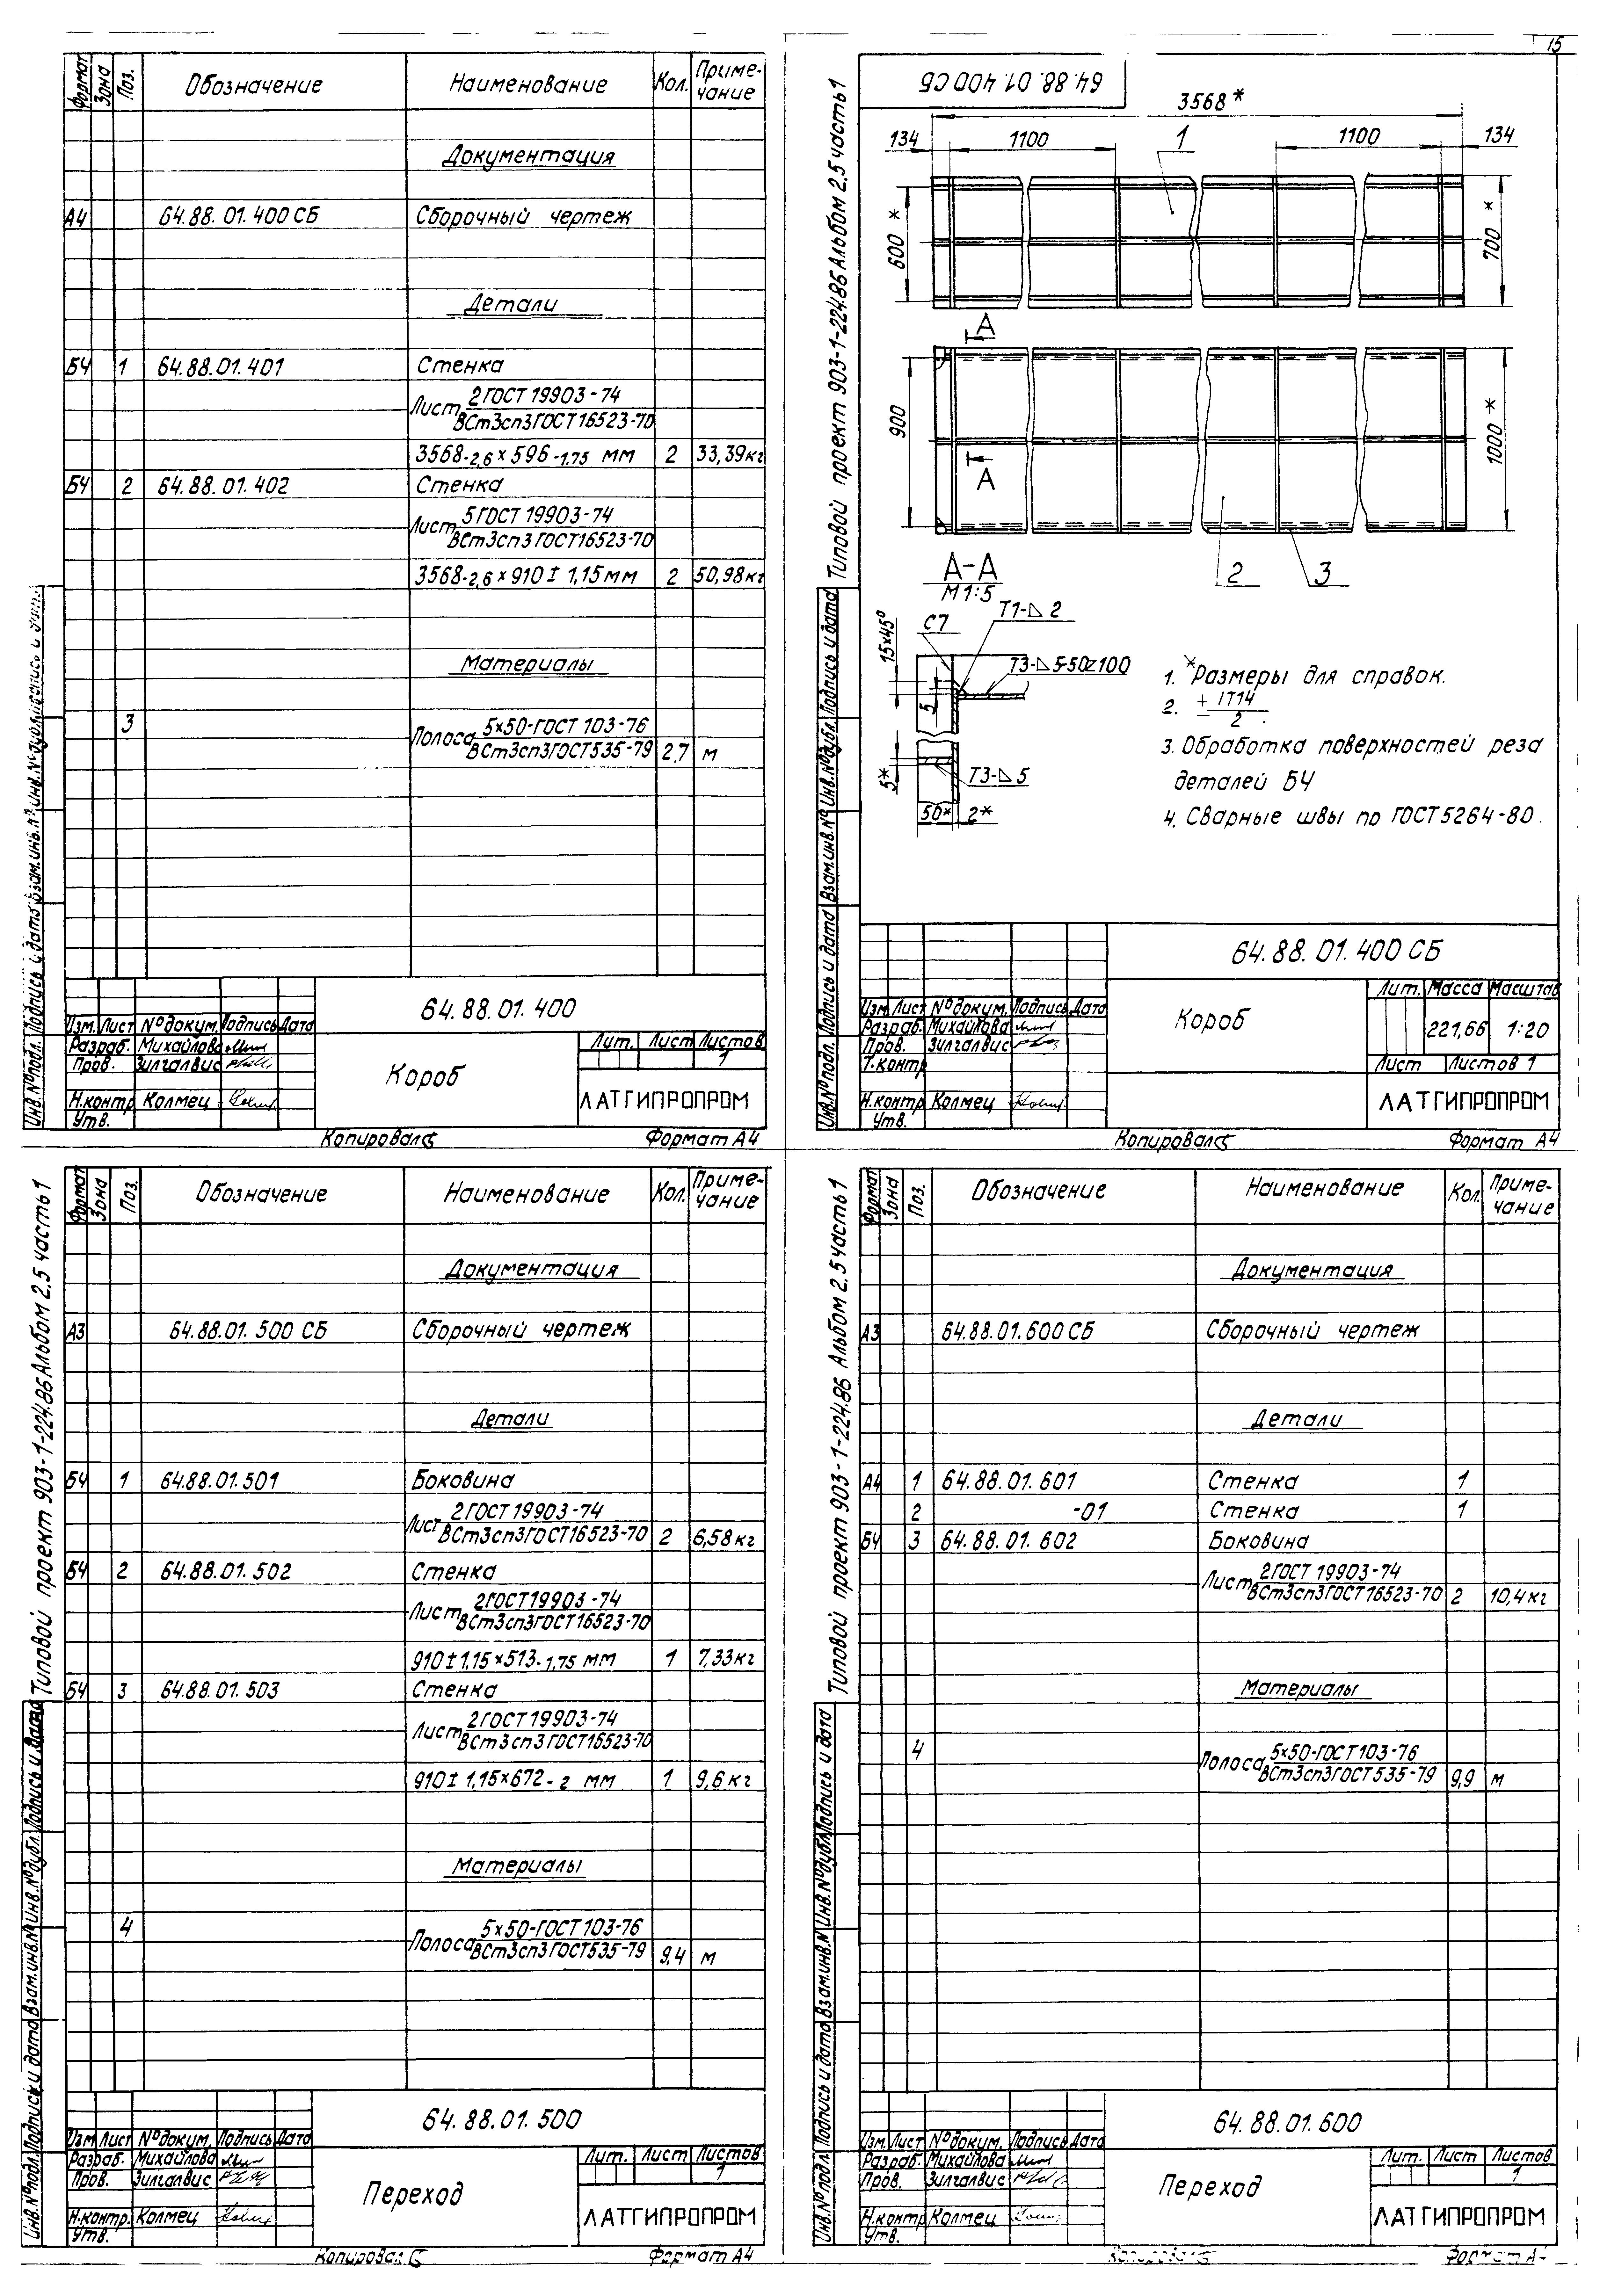 15
Формат
Зона
Поз.
Обозначение
Наименование
Кол.
Приме-
чание
Документация
А4 64.88.01.400 СБ Сборочный чертеж
Детали
БЧ 1 64.88.01.401 Стенка
Лист 2 ГОСТ 19903-74
ВСт3сп3 ГОСТ 16523-70
3568-2,6 × 596-1,75 мм 2 33,39кг
БЧ 2 64.88.01.402 Стенка
Лист 5 ГОСТ 19903-74
ВСт3сп3 ГОСТ 16523-70
3568-2,6 × 910 ± 1,15 мм 2 50,98кг
Материалы
3 Полоса 5×50-ГОСТ 103-76
ВСт3сп3 ГОСТ 535-79 2,7 м
Инв.№подл. Подпись и дата Взам.инв.№ Инв.№дубл.
64.88.01.400
Изм. Лист №докум. Подпись Дата
Разраб. Михайлова
Пров. Зилгалвис
Н.контр Колмец
Утв.
Короб
Лит. Лист Листов
1
ЛАТГИПРОПРОМ
Копировал
Формат А4
Типовой проект 903-1-224.86 Альбом 2.5 часть 1
64.88.01.400 СБ
3568*
134 1100 1 1100 134
600*
700*
А
900
1000*
А
2 3
А-А
М 1:5
Т1-⊿ 2
С7
15×45°
Т3-⊿5-50Z100
5
5*
Т3-⊿5
50* 2*
1. *Размеры для справок.
2. ± IT14
2.
3. Обработка поверхностей реза
деталей БЧ
4. Сварные швы по ГОСТ 5264-80.
Инв.№подл. Подпись и дата Взам.инв.№ Инв.№дубл. Подпись и дата
64.88.01.400 СБ
Изм. Лист №докум. Подпись Дата
Разраб. Михайлова
Пров. Зилгалвис
Т.контр
Н.контр Колмец
Утв.
Короб
Лит. Масса Масштаб
221,66 1:20
Лист Листов 1
ЛАТГИПРОПРОМ
Копировал
Формат А4
Типовой проект 903-1-224.86 Альбом 2.5 часть 1
Формат
Зона
Поз.
Обозначение
Наименование
Кол.
Приме-
чание
Документация
А3 64.88.01.500 СБ Сборочный чертеж
Детали
БЧ 1 64.88.01.501 Боковина
Лист 2 ГОСТ 19903-74
ВСт3сп3 ГОСТ 16523-70 2 6,58кг
БЧ 2 64.88.01.502 Стенка
Лист 2 ГОСТ 19903-74
ВСт3сп3 ГОСТ 16523-70
910 ± 1,15 × 513-1,75 мм 1 7,33кг
БЧ 3 64.88.01.503 Стенка
Лист 2 ГОСТ 19903-74
ВСт3сп3 ГОСТ 16523-70
910 ± 1,15 × 672-2 мм 1 9,6кг
Материалы
4 Полоса 5×50-ГОСТ 103-76
ВСт3сп3 ГОСТ 535-79 9,4 м
Инв.№подл. Подпись и дата Взам.инв.№ Инв.№дубл. Подпись и дата
64.88.01.500
Изм. Лист №докум. Подпись Дата
Разраб. Михайлова
Пров. Зилгалвис
Н.контр. Колмец
Утв.
Переход
Лит. Лист Листов
1
ЛАТГИПРОПРОМ
Копировал
Формат А4
Типовой проект 903-1-224.86 Альбом 2.5 часть 1
Формат
Зона
Поз.
Обозначение
Наименование
Кол.
Приме-
чание
Документация
А3 64.88.01.600 СБ Сборочный чертеж
Детали
А4 1 64.88.01.601 Стенка 1
2 -01 Стенка 1
БЧ 3 64.88.01.602 Боковина
Лист 2 ГОСТ 19903-74
ВСт3сп3 ГОСТ 16523-70 2 10,4кг
Материалы
4 Полоса 5×50-ГОСТ 103-76
ВСт3сп3 ГОСТ 535-79 9,9 м
Инв.№подл. Подпись и дата Взам.инв.№ Инв.№дубл. Подпись и дата
64.88.01.600
Изм. Лист №докум. Подпись Дата
Разраб. Михайлова
Пров. Зилгалвис
Н.контр Колмец
Утв.
Переход
Лит. Лист Листов
1
ЛАТГИПРОПРОМ
Копировал
Формат А4